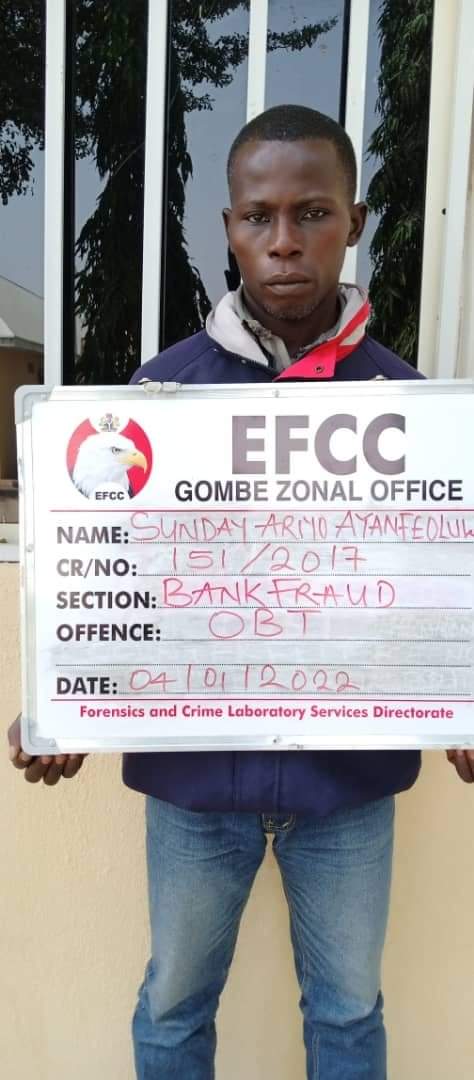 EFCC
EFCC
GOMBE ZONAL OFFICE
NAME: SUNDAY ARIYO AYANFEOLUW
CR/NO: 151/2017
SECTION: BANK FRAUD
OFFENCE: OBT
DATE: 04/01/2022
Forensics and Crime Laboratory Services Directorate